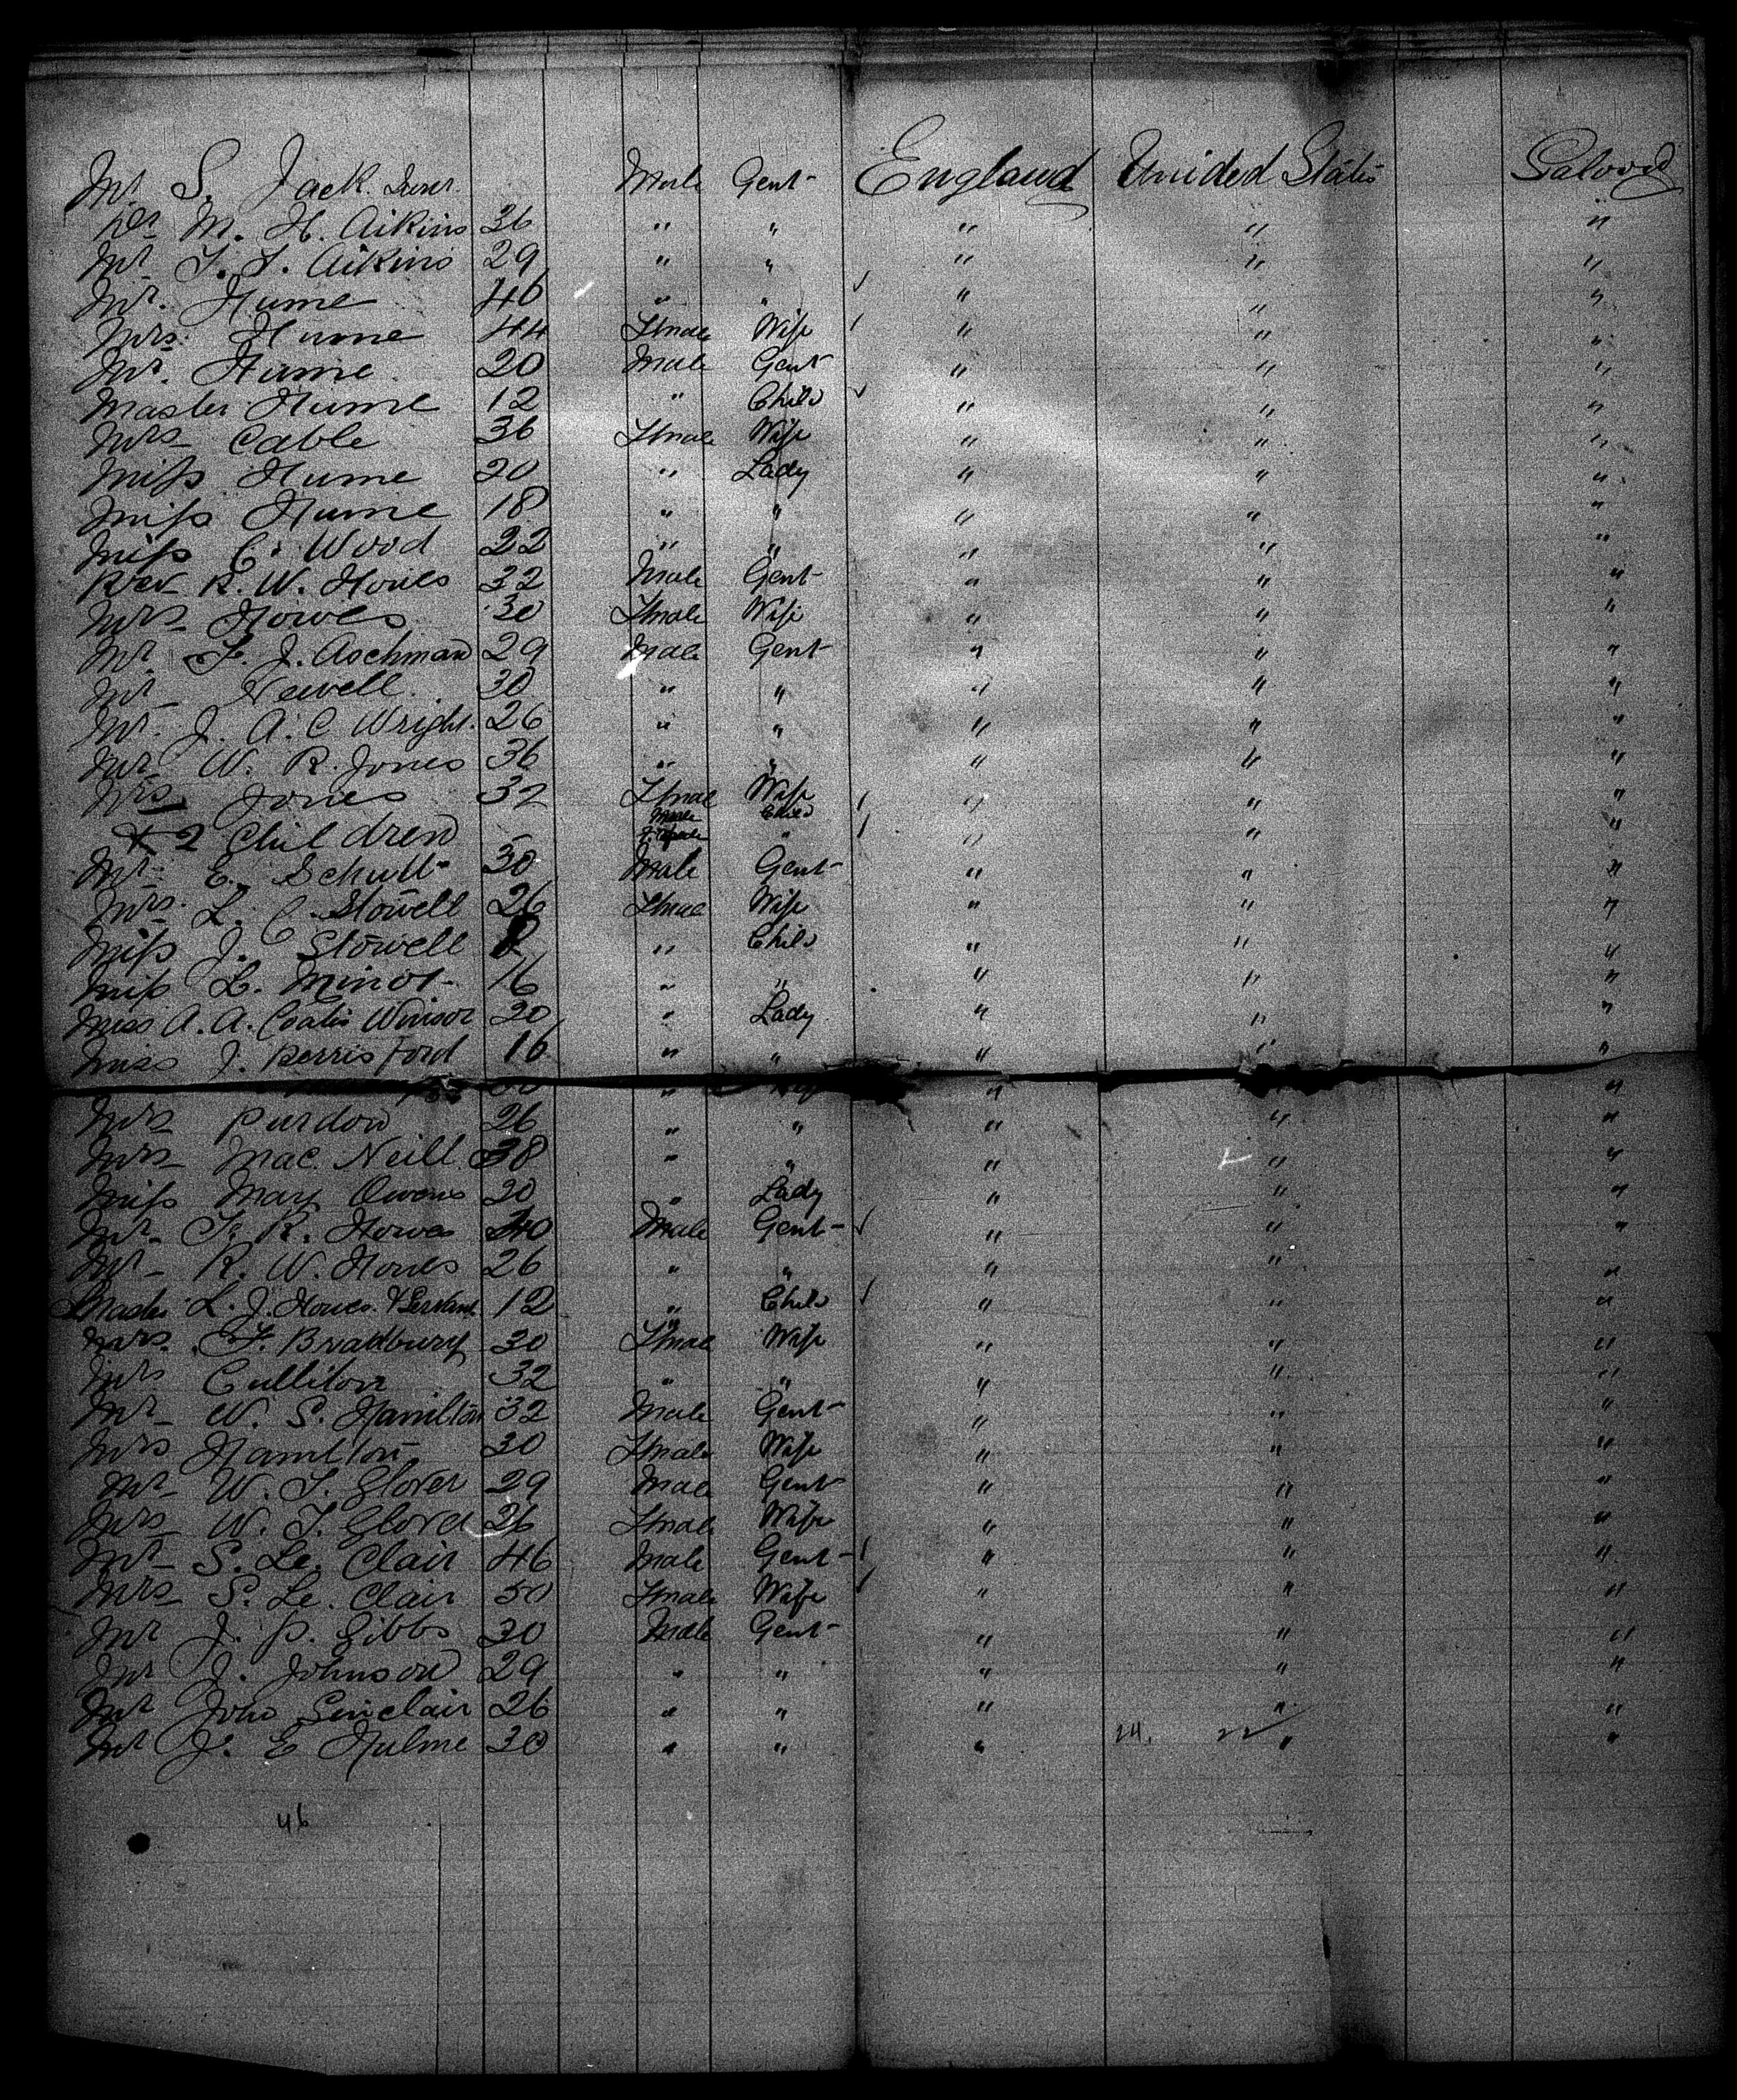 Mr S. Jack Junr. Male Gent England Unided States Saloon
Dr M. H. Aikins 36 " " " " "
Mr T. T. Aikins 29 " " " " "
Mr. Hume 46 " " " " "
Mrs. Hume 44 Female Wife " " "
Mr. Hume 20 Male Gent " " "
Master Hume 12 " Child " " "
Mrs Cable 36 Female Wife " " "
Miss Hume 20 " Lady " " "
Miss Hume 18 " " " " "
Miss C. Wood 22 " " " " "
Rev R. W. Howes 32 Male Gent " " "
Mrs Howes 30 Female Wife " " "
Mr F. J. Aschman 29 Male Gent " " "
Mr Newell 30 " " " " "
Mr. J. A. C Wright. 26 " " " " "
Mr W. R. Jones 36 " " " " "
Mrs Jones 32 Female Wife " " "
& 2 Children Male Child
Female " " " "
Mr E. Schutt 30 Male Gent " " "
Mrs. L. C. Stowell 26 Female Wife " " "
Miss J. Stowell " Child " " "
Miss L. Minot 16 " " " " "
Miss A. A. Coates Winsor 20 " Lady " " "
Miss J. Berris Ford 16 " " " " "
" " "
Mrs Purdon 26 " " " " "
Mrs Mac. Neill 38 " " " " "
Miss Mary Owens 20 " Lady " " "
Mr F. R. Howes 40 Male Gent " " "
Mr R. W. Howes 26 " " " " "
Master L. J. Howes & Servant 12 " Child " " "
Mrs. F. Bradbury 30 Female Wife " " "
Mrs Culliton 32 " " " " "
Mr W. S. Hamilton 32 Male Gent " " "
Mrs Hamilton 30 Female Wife " " "
Mr W. T. Glover 29 Male Gent " " "
Mrs W. T. Glover 26 Female Wife " " "
Mr S. Le. Clair 46 Male Gent " " "
Mrs S. Le. Clair 50 Female Wife " " "
Mr J. P. Gibbs 30 Male Gent " " "
Mr J. Johnson 29 " " " " "
Mr John Sinclair 26 " " " " "
Mr J. E Hulme 30 " " " 24. 22 " "
46